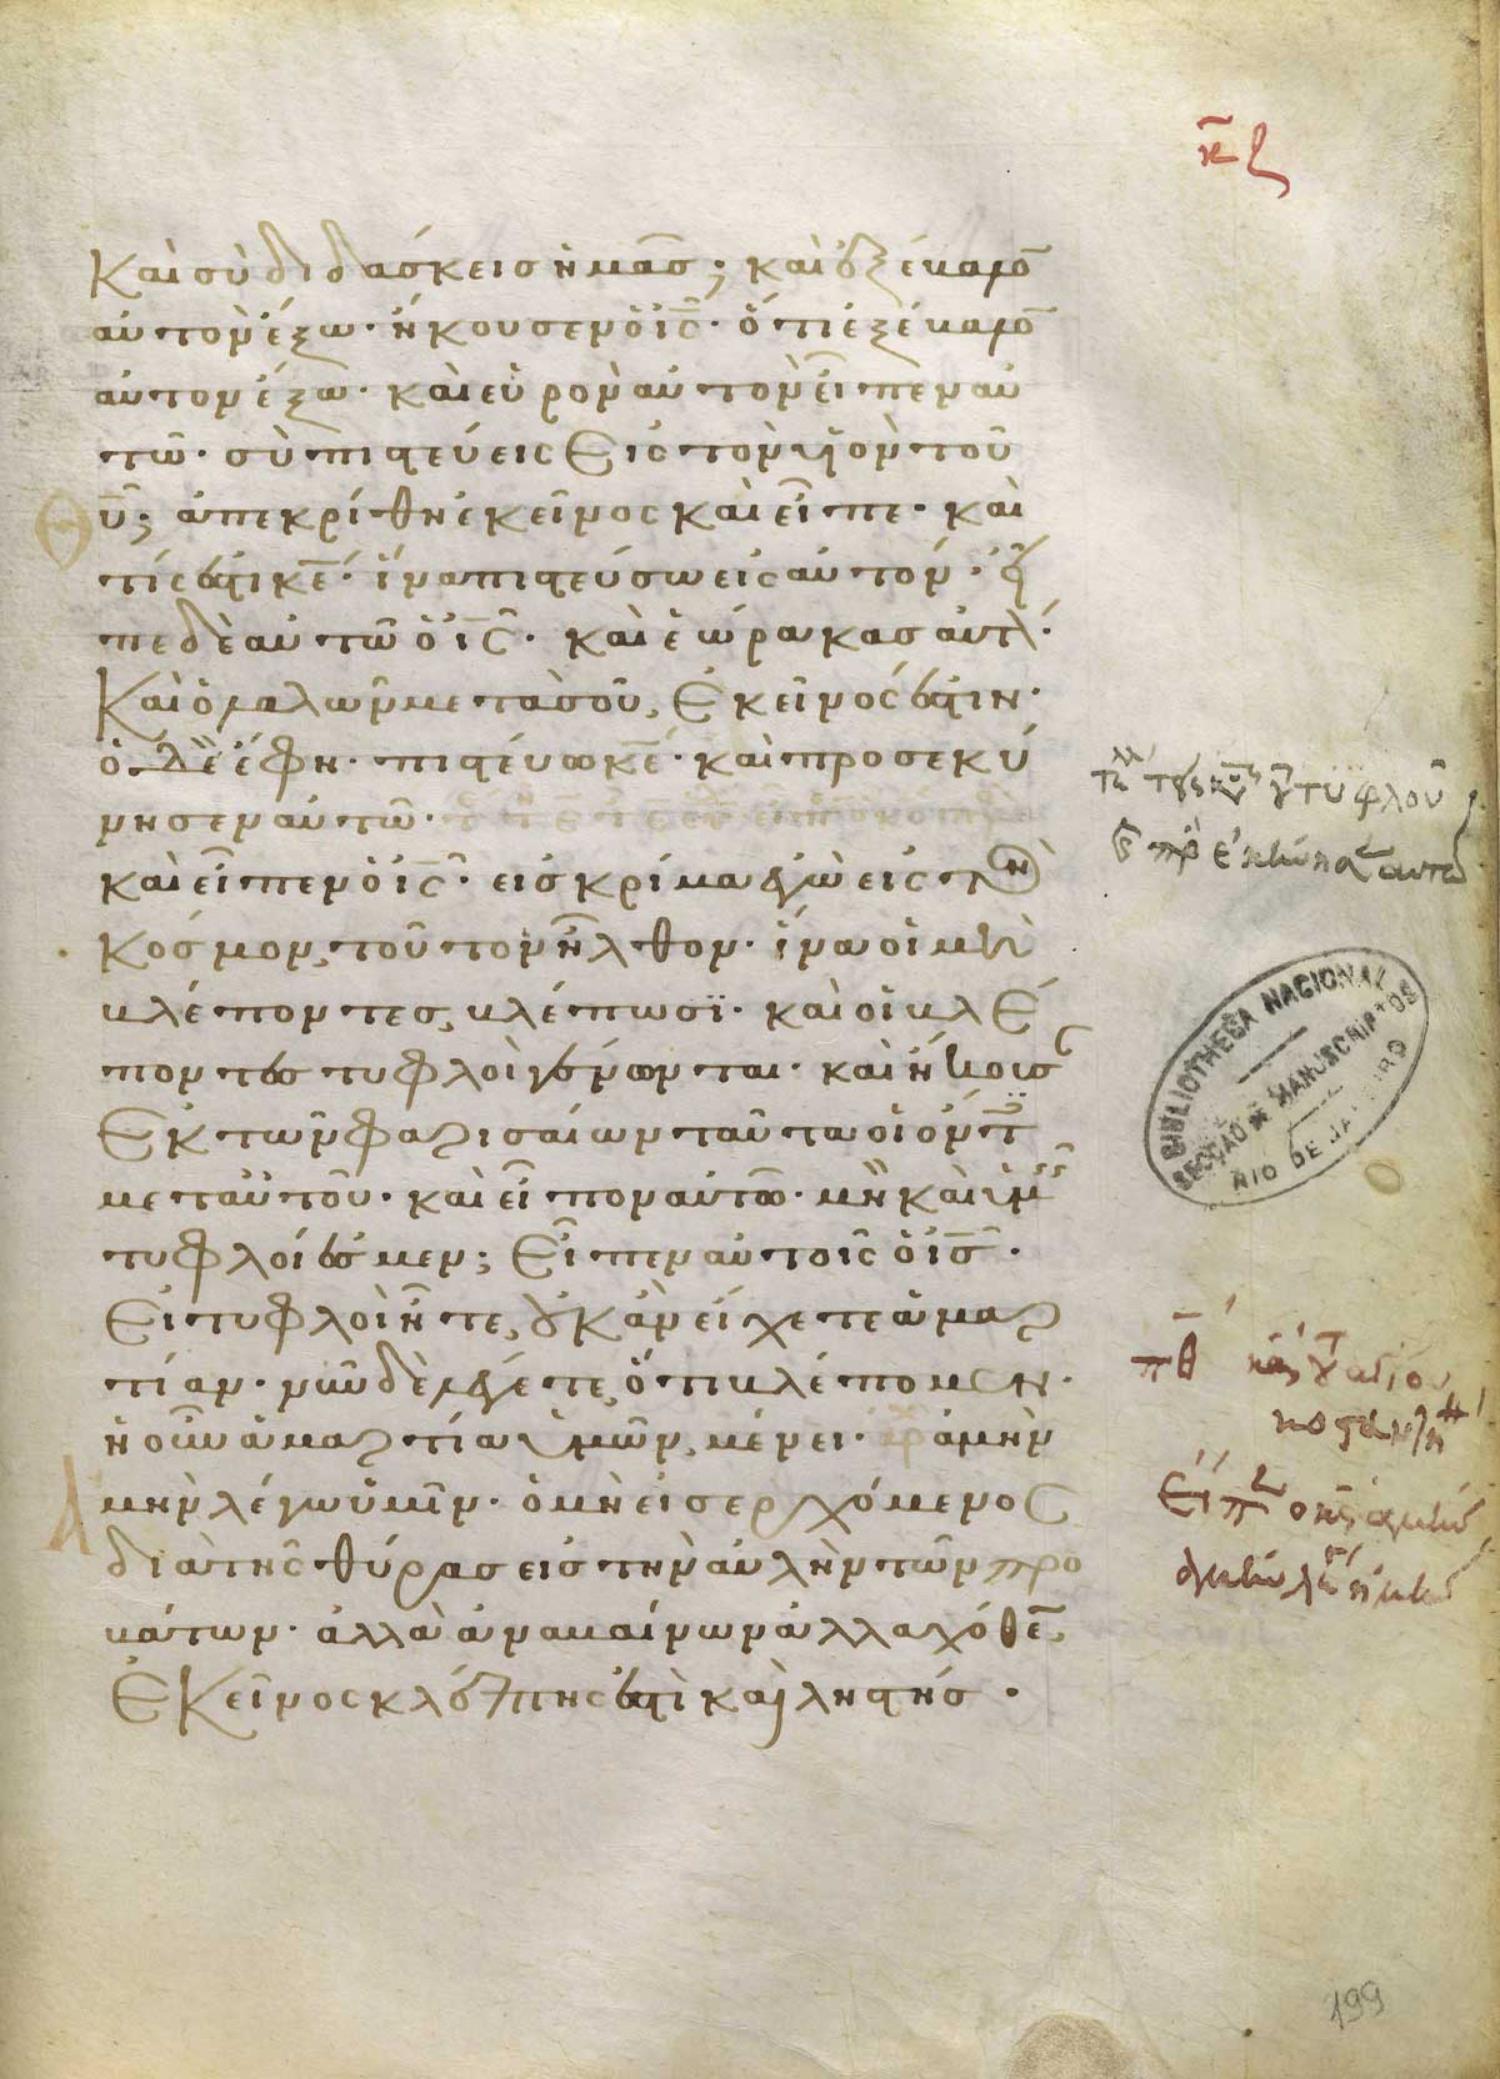 κζ
Και σὺ διδάσκεις ἡμᾶσ; καὶ ἐξέβαλο̄
αὐτὸν ἔξω· ἤκουσεν ὁ ις̄· ὅτι ἐξέβαλο̄
αὐτον ἔξω· καὶ εὑρὸν αὐτὸν εἶπεν αὐ
τῶ· σὺ πιστεύεις εἰς τὸν υἱὸν τοῦ
θῡ; ἀπεκρίθη ἐκεῖνος καὶ εἶπε· καὶ
τίς ἐστι κε̄· ἵνα πιστεύσω εἰς αὐτόν· εἶ
πε δὲ αὐτῶ ὁ ις̄· καὶ ἑώρακασ αὐτ̀·
Καὶ ὁ λαλῶν μετὰ σοῦ, ἐκεῖνός ἐστιν·
ὁ δὲ ἔφη· πιστεύω κε̄· καὶ προσεκύ
νησεν αὐτῶ·
καὶ εἶπεν ὁ ις̄· εἰς κρίμα ἐγὼ εἰς τὸν
κόσμον, τοῦτον ἦλθον· ἵνα οἱ μὴ
βλέποντες, βλέπωσϊ· καὶ οἱ βλέ
ποντεσ τυφλοὶ γένωνται· καὶ ἤκουσ
ἐκ τῶν φαρισαίων ταῦτα οἱ ὄντ
μετ αὐτοῦ· καὶ εἶπον αὐτῶ· μὴ καὶ ἡμ
τυφλοί ἐσμεν; εἶπεν αὐτοῖς ὁ ισ̄·
εἰ τυφλοὶ ἦτε, οὐκ ἂν εἴχετε ἁμαρ
τίαν· νῦν δὲ λέγετε, ὅτι βλέπομεν·
ἡ οὖν ἁμαρτία ὑμῶν, μένει· ἀμὴν
ἀμὴν λέγω ὑμῖν· ὁ μὴ εἰσερχόμενος
διὰ τῆς θύρασ εἰς τὴν αὐλὴν τῶν προ
βάτων· ἀλλὰ ἀναβαίνων ἀλλαχόθε̄,
ἐκεῖνος κλέπτης ἐστὶ καὶ ληστήσ·
τυφλοῦ
BIBLIOTHECA NACIONAL
SECÇÃO DE MANUSCRIPTOS
RIO DE JANEIRO
199